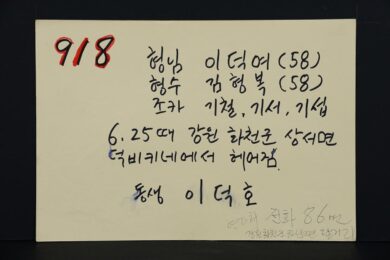 918
형님 이덕여(58)
형수 김형복(58)
조카 기철, 기서, 기섭
6.25때 강원 화천군 상서면
덕비키네에서 헤어짐.
동생 이덕호
전화 86